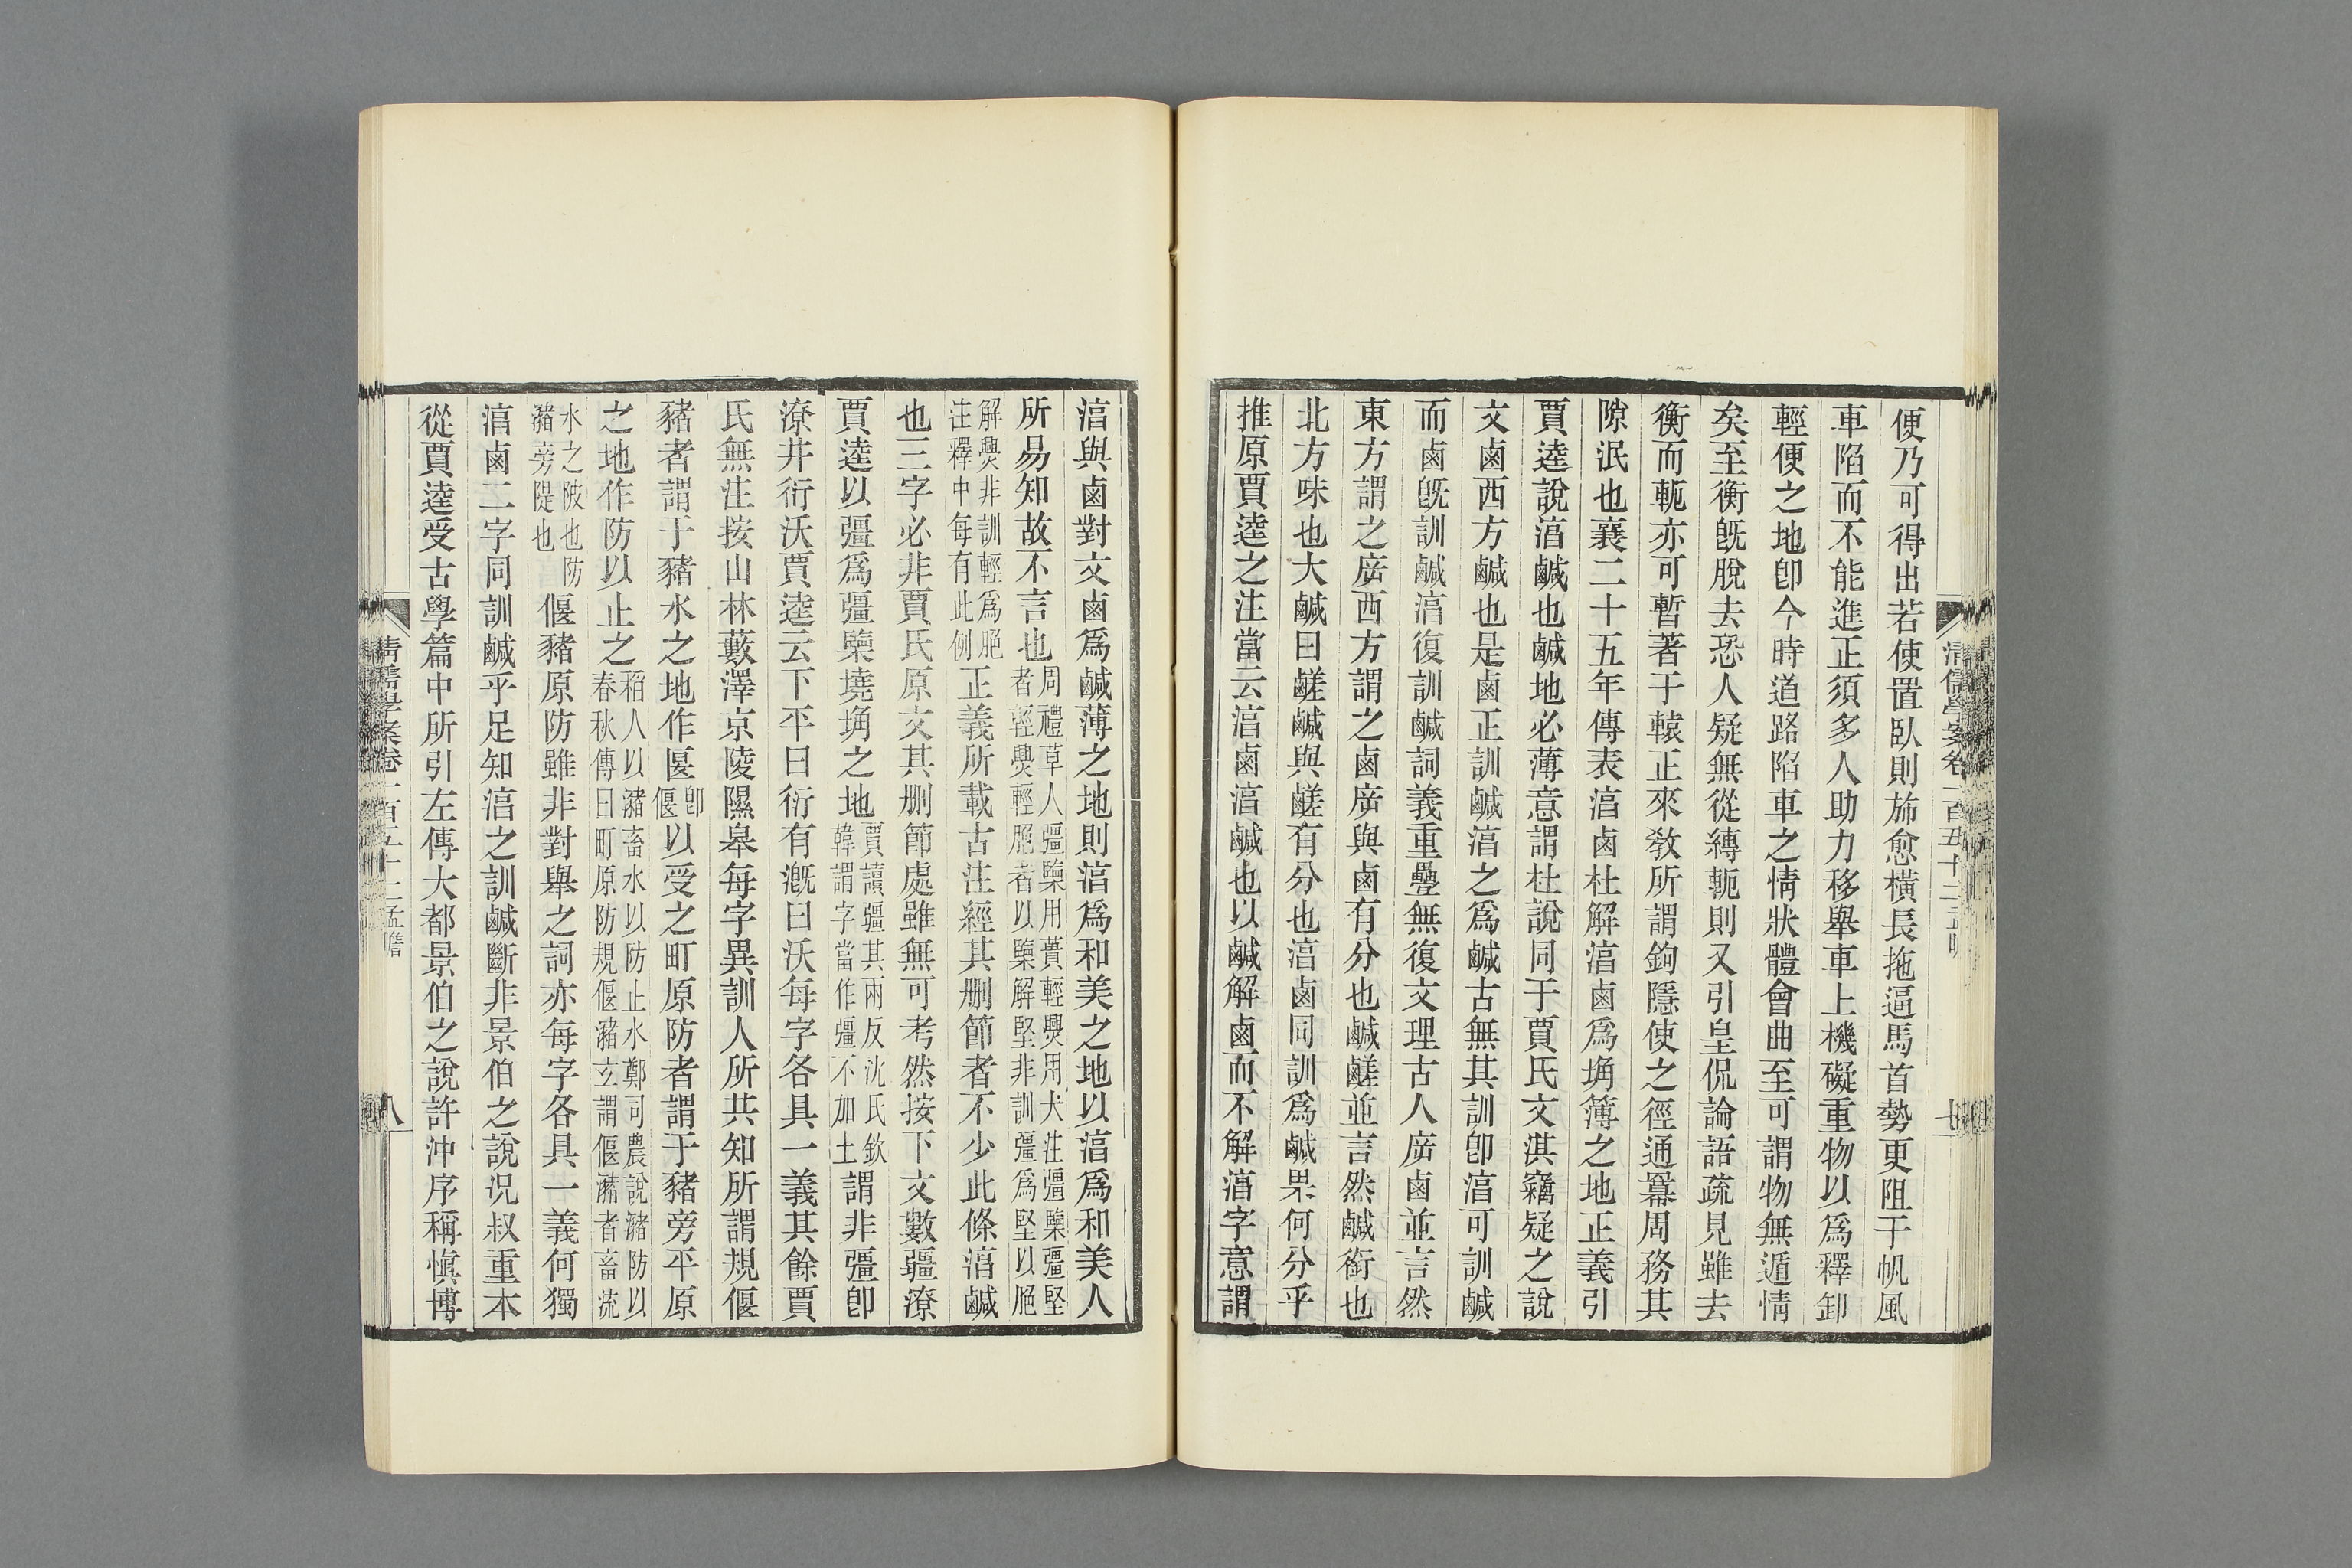 便乃可得出若使置臥則斾愈橫長拖逼馬首勢更阻于帆風
車陷而不能進正須多人助力移舉車上機礙重物以爲釋卸
輕便之地卽今時道路陷車之情狀體會曲至可謂物無遁情
矣至衡旣脫去恐人疑無從縳軛則又引皇侃論語疏見雖去
衡而軛亦可暫著于轅正來敎所謂鉤隱使之徑通冪周務其
隙泯也襄二十五年傳表淳鹵杜解淳鹵爲埆簿之地正義引
賈逵說淳鹹也鹹地必薄意謂杜說同于賈氏文淇竊疑之說
文鹵西方鹹也是鹵正訓鹹淳之爲鹹古無其訓卽淳可訓鹹
而鹵旣訓鹹淳復訓鹹詞義重疊無復文理古人㡿鹵並言然
東方謂之㡿西方謂之鹵㡿與鹵有分也鹹鹺並言然鹹銜也
北方味也大鹹曰鹺鹹與鹺有分也淳鹵同訓爲鹹果何分乎
推原賈逵之注當云淳鹵淳鹹也以鹹解鹵而不解淳字意謂
清儒學案卷一百五十二
七
淳與鹵對文鹵爲鹹薄之地則淳爲和美之地以淳爲和美人
所易知故不言也周禮草人彊㯺用蕡輕爂用犬注彊㯺彊堅者輕爂輕脃者以㯺解堅非訓彊爲堅以脃
解爂非訓輕爲脃注釋中每有此例正義所載古注經其刪節者不少此條淳鹹
也三字必非賈氏原文其刪節處雖無可考然按下文數疆潦
賈逵以疆爲彊㯺墝埆之地賈讀疆其兩反沈氏欽韓謂字當作彊不加土謂非疆卽
潦井衍沃賈逵云下平曰衍有漑曰沃每字各具一義其餘賈
氏無注按山林藪澤京陵隰皋每字異訓人所共知所謂規偃
豬者謂于豬水之地作匽卽偃以受之町原防者謂于豬旁平原
之地作防以止之稻人以瀦畜水以防止水鄭司農說瀦防以春秋傳曰町原防規偃瀦玄謂偃瀦者畜流
水之陂也防瀦旁隄也偃豬原防雖非對舉之詞亦每字各具一義何獨
淳鹵二字同訓鹹乎足知淳之訓鹹斷非景伯之說況叔重本
從賈逵受古學篇中所引左傳大都景伯之說許沖序稱愼博
清儒學案卷一百五十二 孟瞻
八